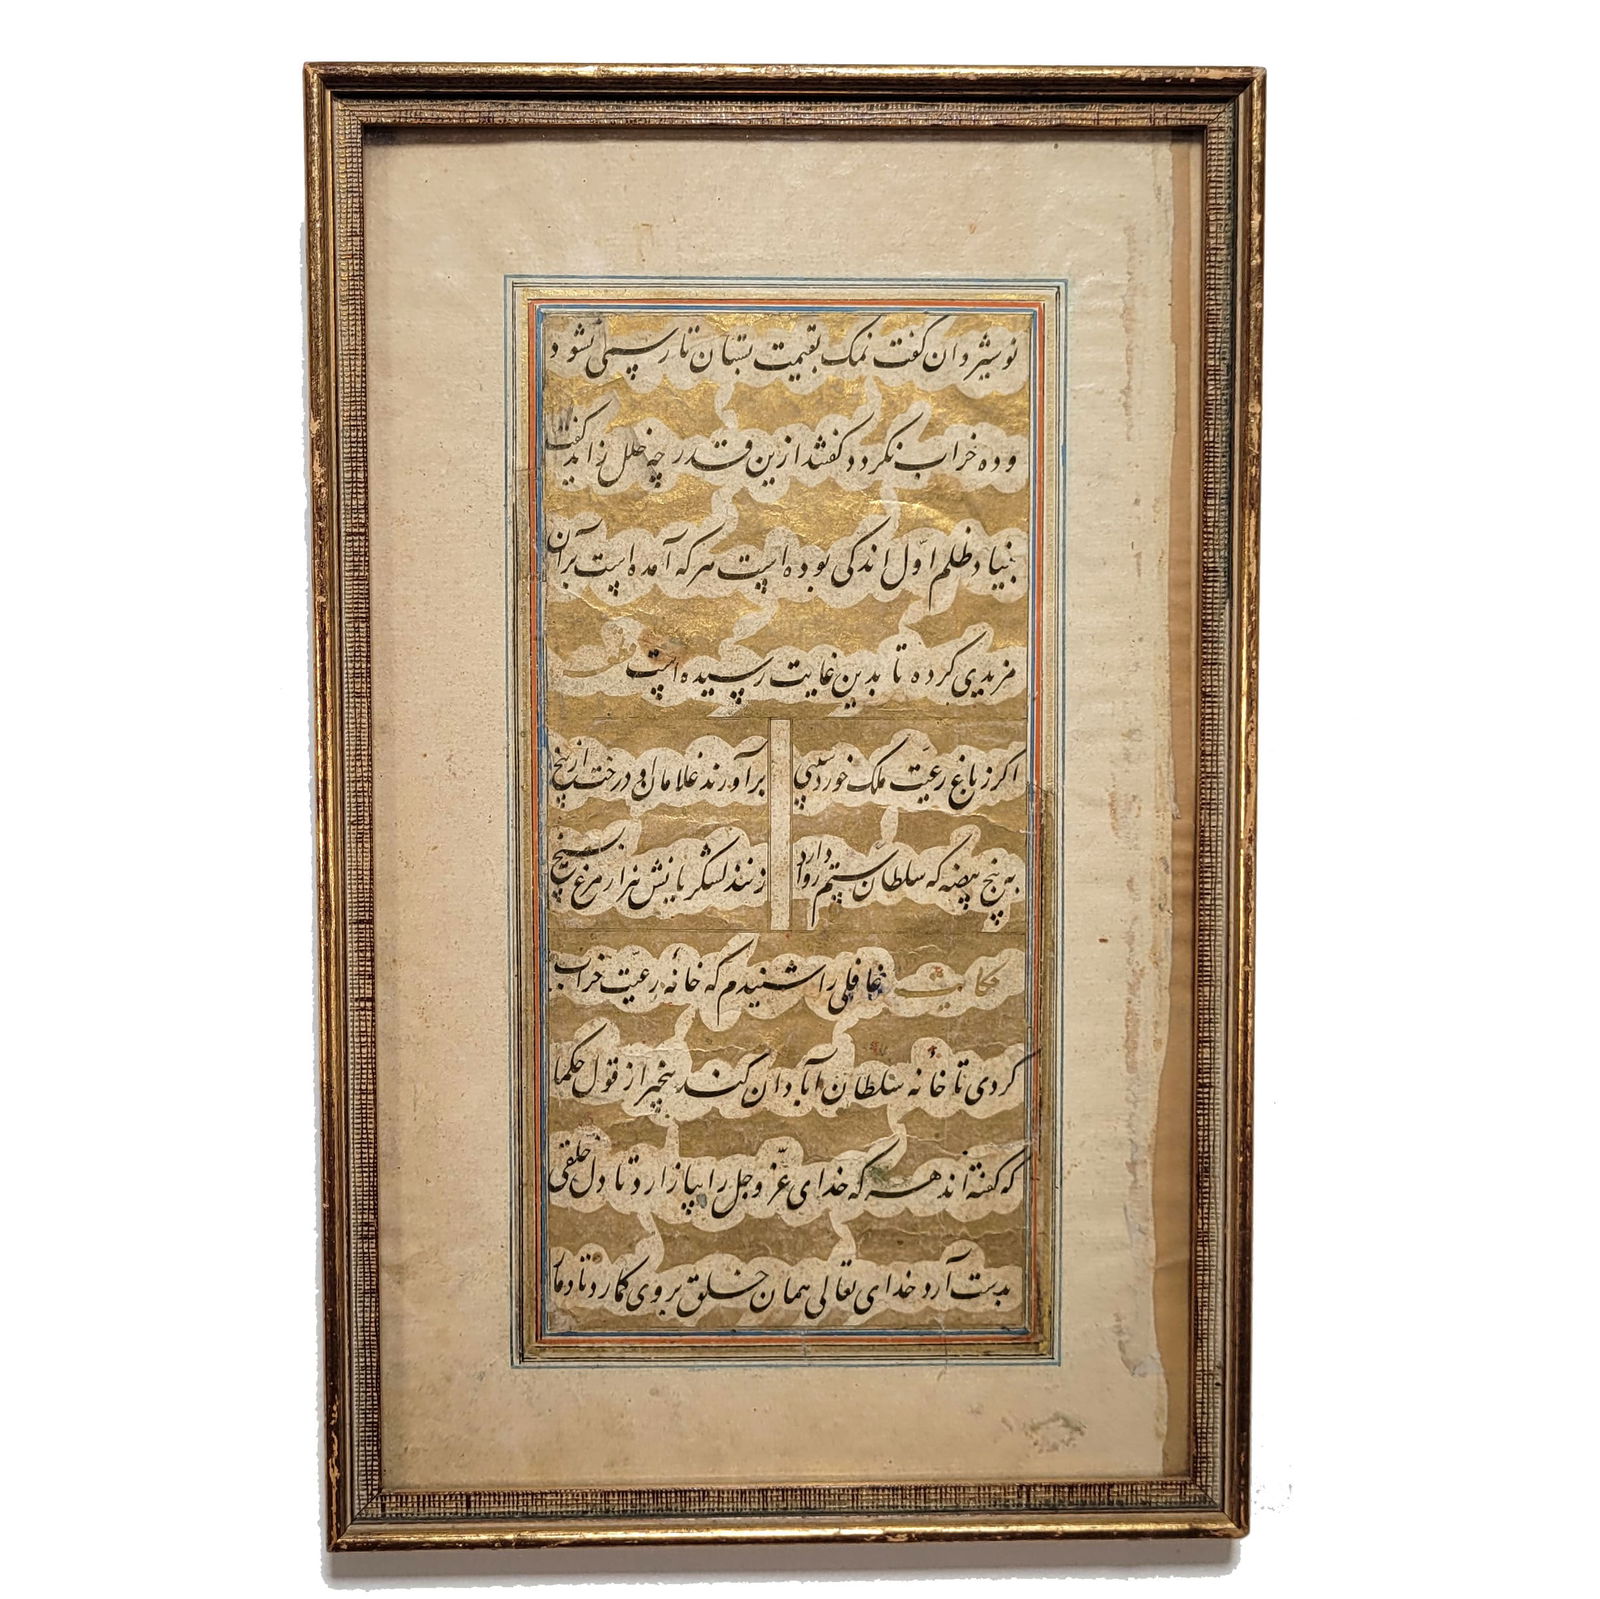 نوشیروان گفت نمک بقیمت بستان تا رسمی نشود
و ده خراب نگردد گفتند ازین قدر چه خلل زاید گفت
بنیاد ظلم اول اندکی بوده است هر که آمده است بر آن
مزیدی کرده تا بدین غایت رسیده است
اگر ز باغ رعیت ملک خورد سیبی برآورند غلامان او درخت از بیخ
به پنج بیضه که سلطان ستم روا دارد زنند لشکریانش هزار مرغ بسیخ
حکایت غافلی را شنیدم که خانه رعیت خراب
کردی تا خانه سلطان آبادان کند بیخبر از قول حکما
که گفته‌اند هر که خدای عزّ و جل را بیازارد تا دل خلقی
بدست آرد خدای تعالی همان خلق بر وی گمارد تا دمار